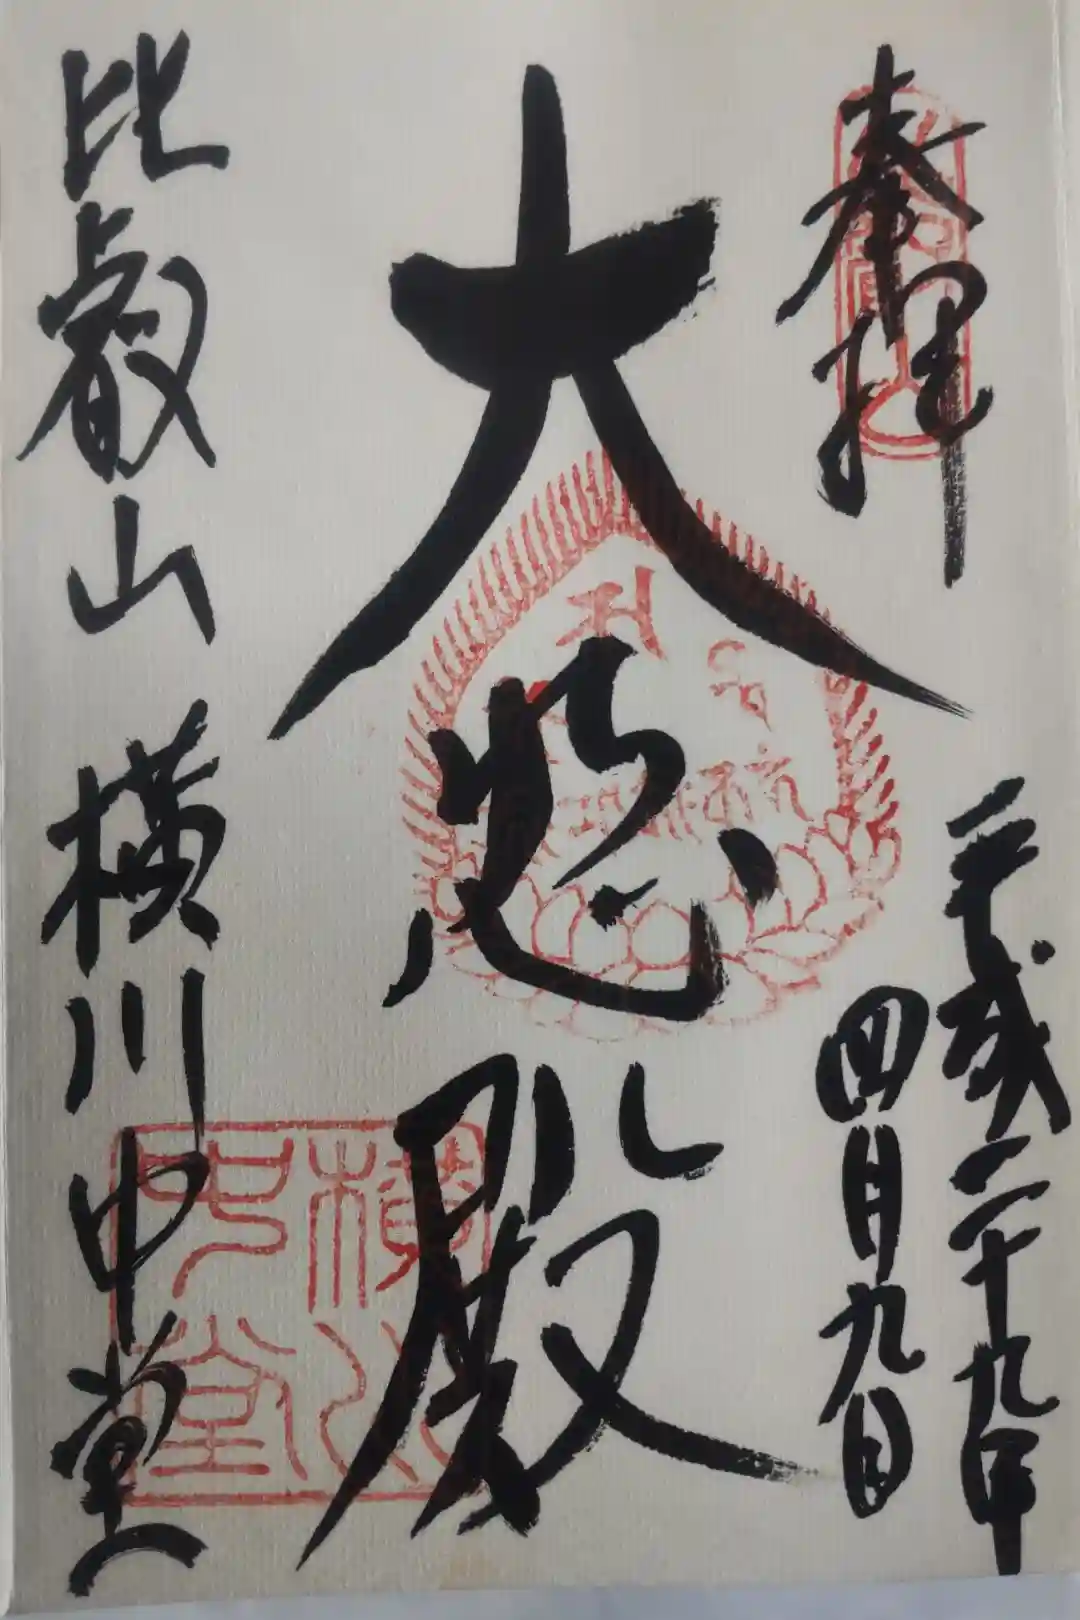 奉拝
平成二十九年
四月九日
大悲殿
比叡山 横川中堂
横川中堂